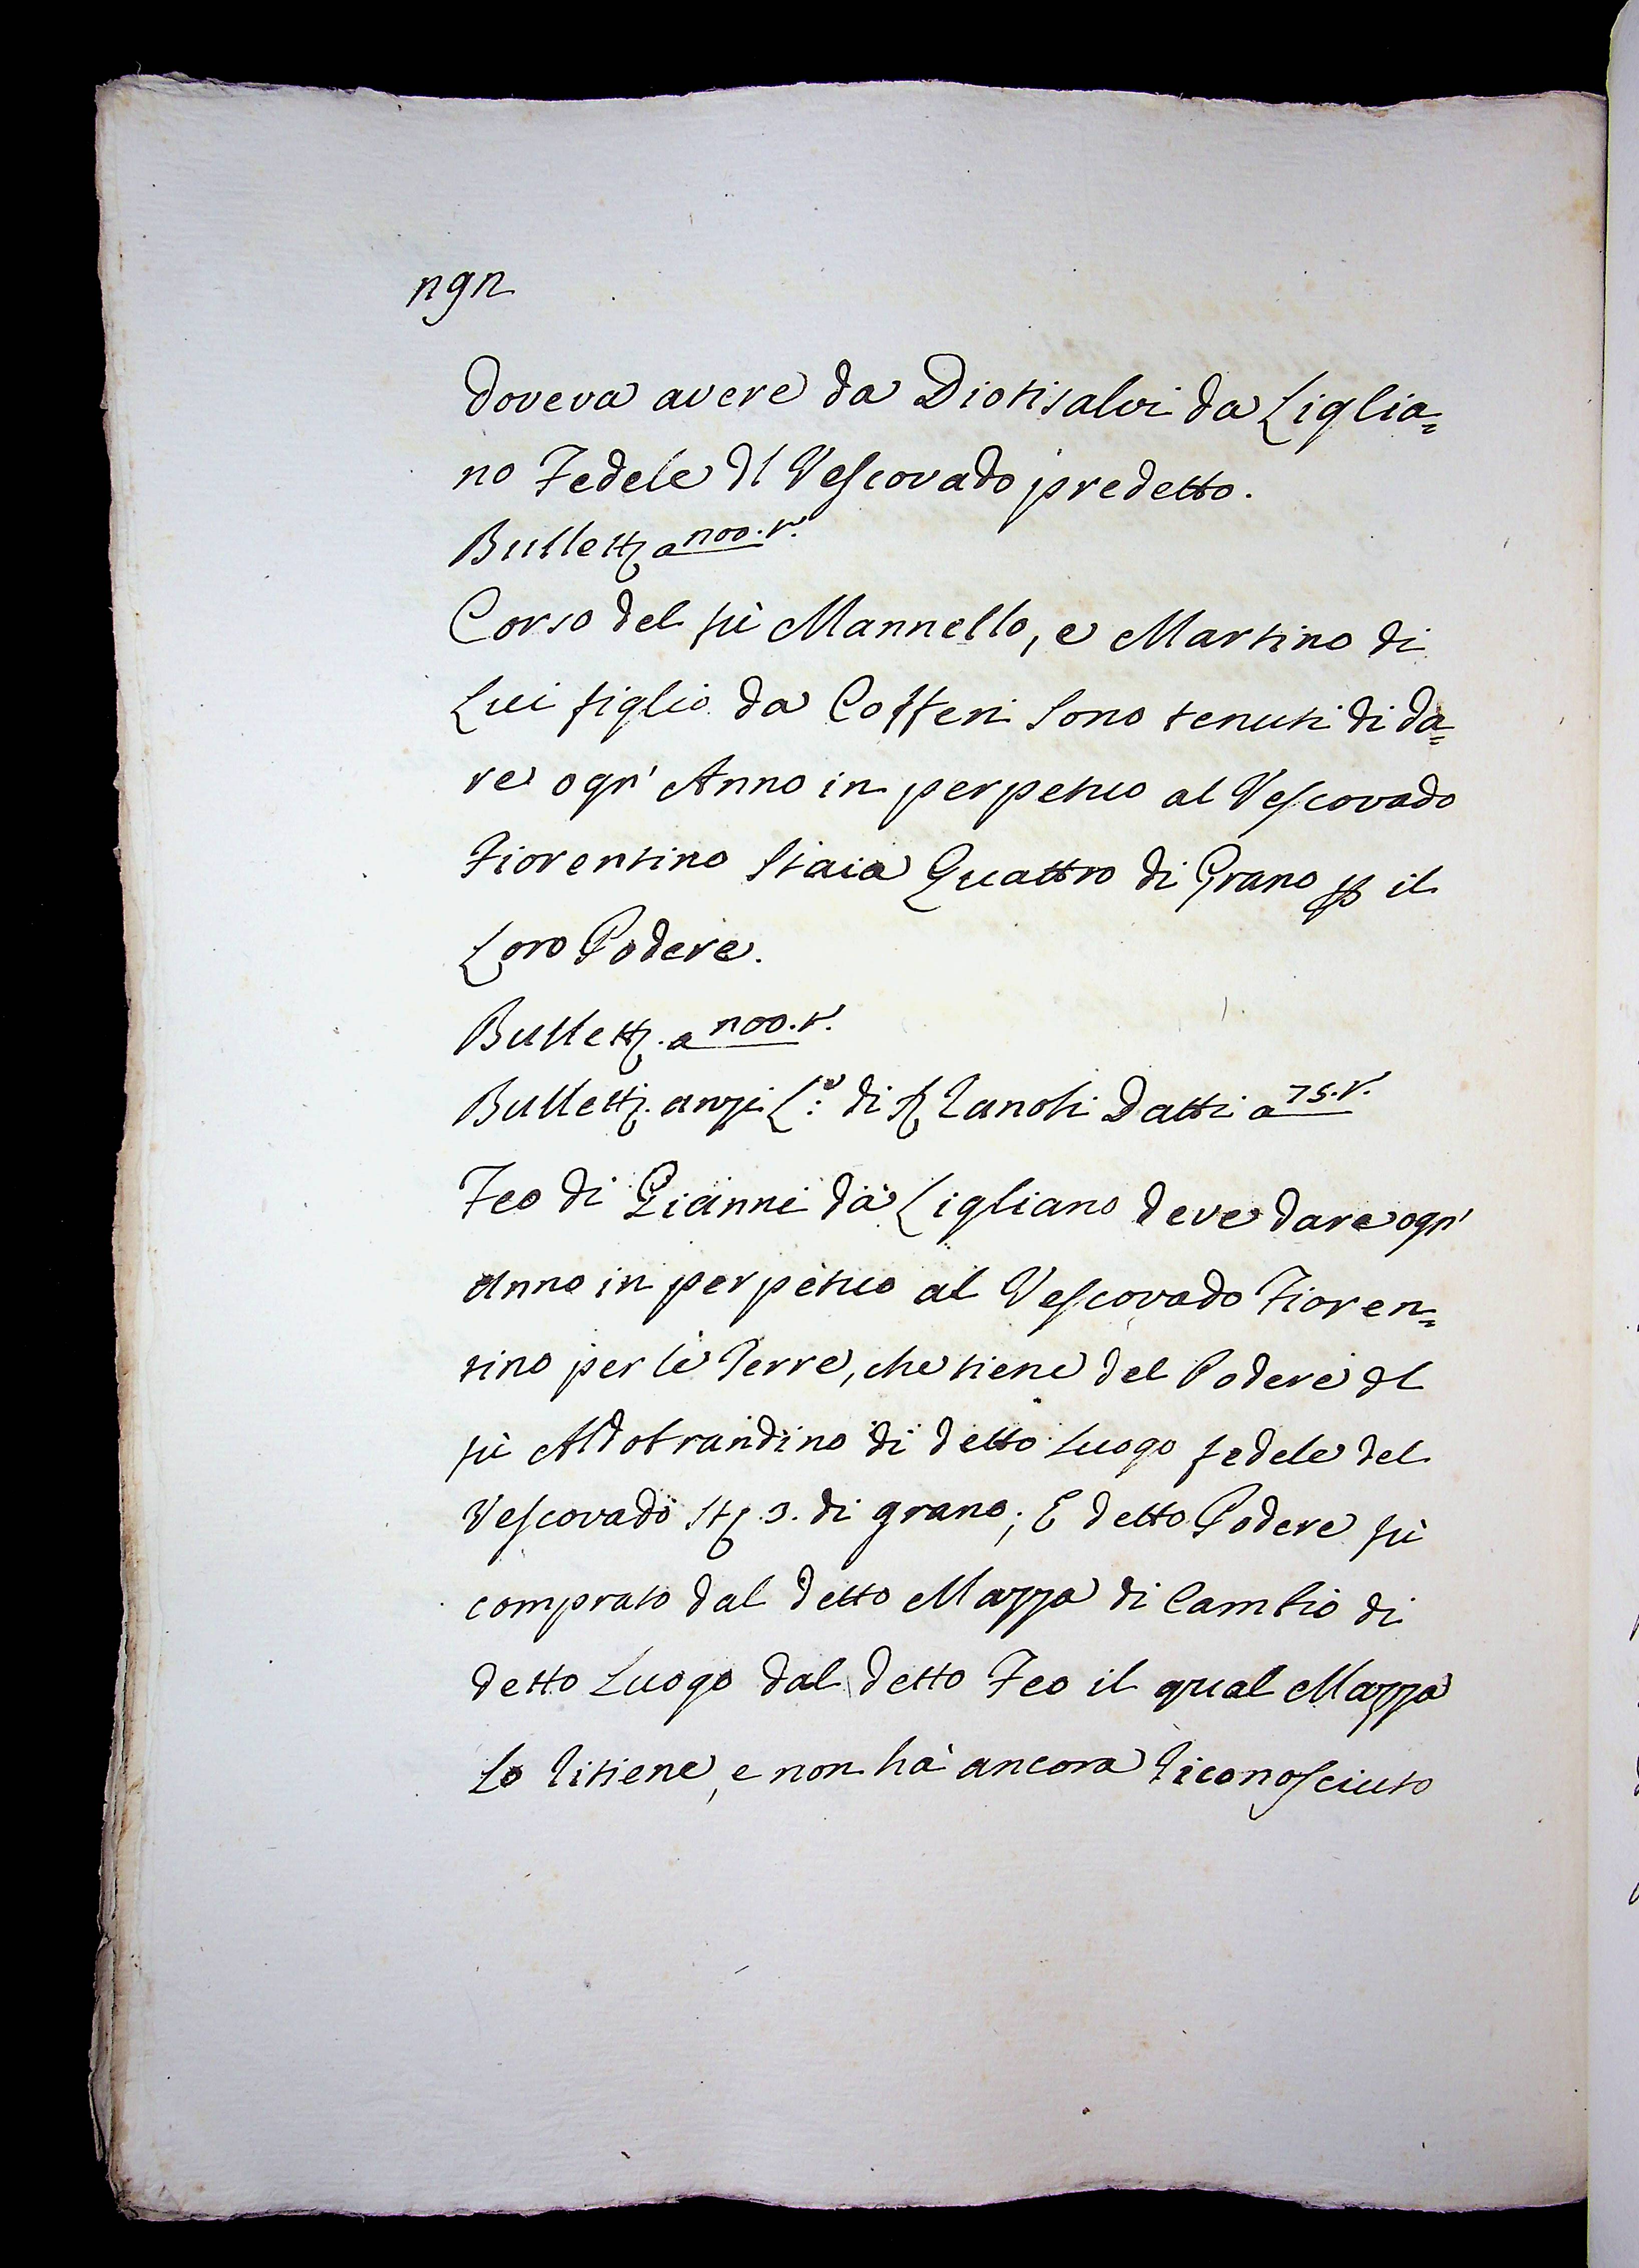 192
doveva avere da Diotisalvi da Liglia=
no Fedele dl Vescovado predetto.
Bullett. a 100. v.
Corso del fù Mannello, e Martino di
Lui figlio da Cofferi sono tenuti di da=
re ogn' Anno in perpetuo al Vescovado
Fiorentino Staia Quattro di Grano p il
Loro Podere.
Bullett. a 100. v.
Bullett. anzi L.o di Zanobi Datti a 75. v.
Feo di Gianni da Ligliano deve dare ogn'
Anno in perpetuo al Vescovado Fioren=
tino per le Terre, che tiene del Podere dl
fù Aldobrandino di detto Luogo fedele del
Vescovado St. 3. di grano; E detto Podere fù
comprato dal detto Mazza di Cambio di
detto Luogo dal detto Feo il qual Mazza
Lo Ritiene, e non hà ancora Riconosciuto